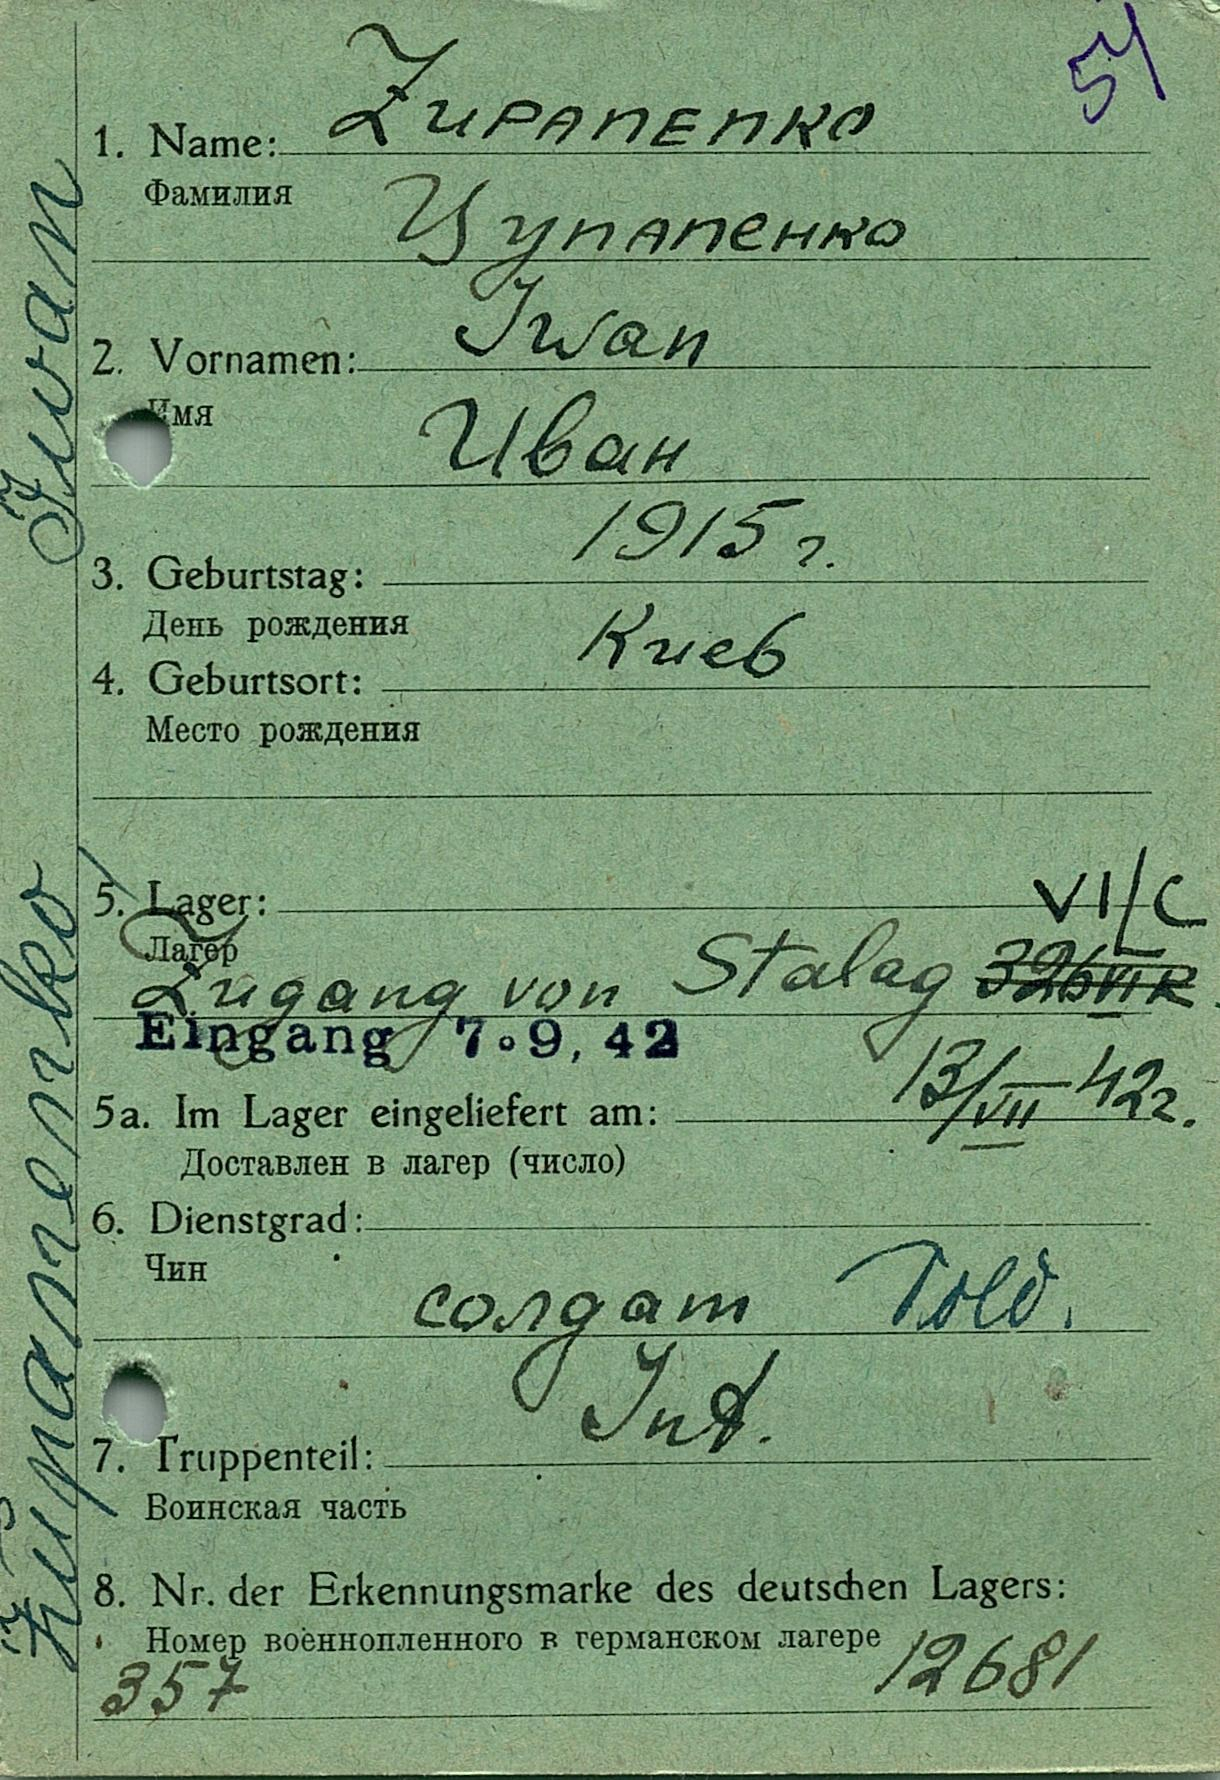 54
Zupanenko
1. Name:
Фамилия
Цупапенко
Iwan
2. Vornamen:
Имя
Иван
1915 г.
3. Geburtstag:
День рождения
Киев
4. Geburtsort:
Место рождения
VI/C
5. Lager:
Лагер
Zugang von Stalag 326 VI K
Eingang 7.9.42
13/VII-42г.
5a. Im Lager eingeliefert am:
Доставлен в лагер (число)
6. Dienstgrad:
Чин
солдат Sold.
Inf.
7. Truppenteil:
Воинская часть
8. Nr. der Erkennungsmarke des deutschen Lagers:
Номер военнопленного в германском лагере
357 12681
Zupanenko, Iwan